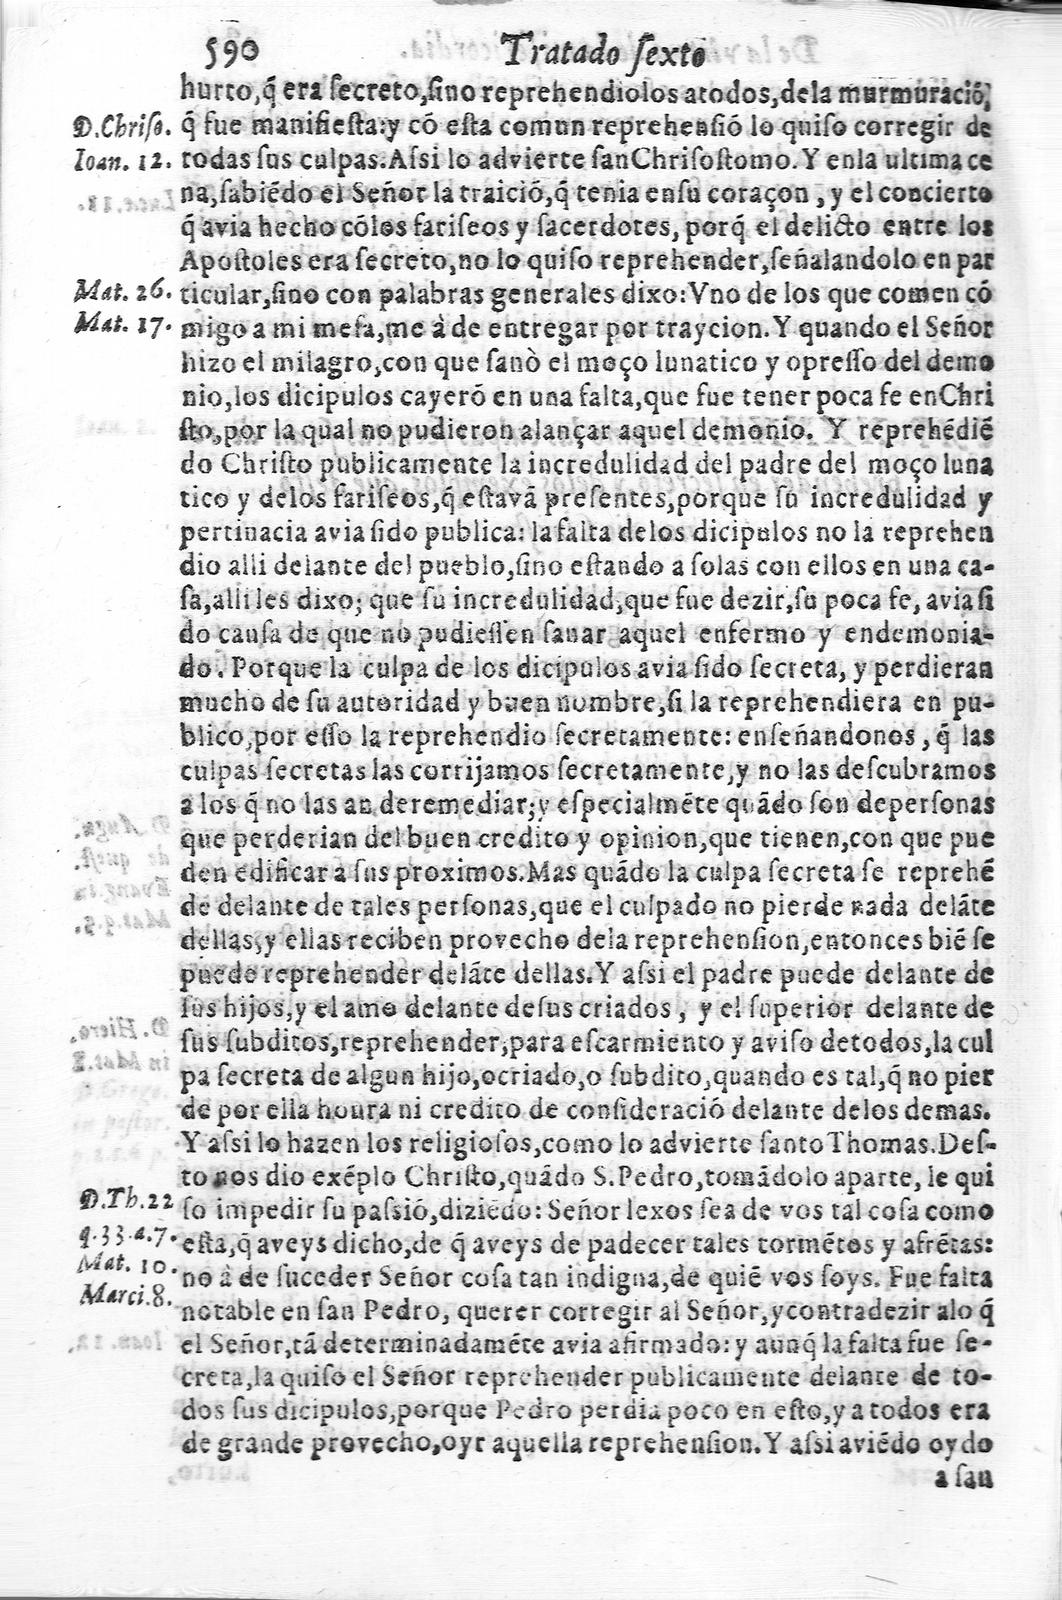 590 Tratado ſexto
hurto,q̃ era ſecreto,ſino reprehendiolos atodos,dela murmuració,
D.Chriſo. q̃ fue manifieſta:y có eſta comun reprehenſió lo quiſo corregir de
Ioan. 12. todas ſus culpas.Aſsi lo advierte ſanChriſoſtomo.Y enla ultima ce
na,ſabiẽdo el Señor la traició,q̃ tenia enſu coraçon, y el concierto
q̃ avia hecho cólos fariſeos y ſacerdotes, porq̃ el delicto entre los
Apoſtoles era ſecreto,no lo quiſo reprehender,ſeñalandolo en par
Mat. 26. ticular,ſino con palabras generales dixo:Vno de los que comen có
Mat. 17. migo a mi meſa,me à de entregar por traycion.Y quando el Señor
hizo el milagro,con que ſanò el moço lunatico y opreſſo del demo
nio,los dicipulos cayeró en una falta,que fue tener poca fe enChri
ſto,por la qual no pudieron alançar aquel demonio. Y reprehẽdiẽ
do Chriſto publicamente la incredulidad del padre del moço luna
tico y delos fariſeos,q̃ eſtavã preſentes,porque ſu incredulidad y
pertinacia avia ſido publica: la falta delos dicipulos no la reprehen
dio alli delante del pueblo,ſino eſtando a ſolas con ellos en una ca-
ſa,alli les dixo; que ſu incredulidad,que fue dezir,ſu poca fe, avia ſi
do cauſa de que no pudieſſen ſanar aquel enfermo y endemonia-
do. Porque la culpa de los dicipulos avia ſido ſecreta, y perdieran
mucho de ſu autoridad y buen nombre,ſi la reprehendiera en pu-
blico,por eſſo la reprehendio ſecretamente: enſeñandonos, q̃ las
culpas ſecretas las corrijamos ſecretamente,y no las deſcubramos
a los q̃ no las an deremediar;y eſpecialmẽte quãdo ſon deperſonas
que perderian del buen credito y opinion,que tienen,con que pue
den edificar a ſus proximos.Mas quãdo la culpa ſecreta ſe reprehẽ
de delante de tales perſonas,que el culpado no pierde nada delãte
dellas,y ellas reciben provecho dela reprehenſion,entonces biẽ ſe
puede reprehender delãte dellas.Y aſsi el padre puede delante de
ſus hijos,y el amo delante deſus criados, y el ſuperior delante de
ſus ſubditos,reprehender,para eſcarmiento y aviſo detodos,la cul
pa ſecreta de algun hijo,ocriado,o ſubdito,quando es tal,q̃ no pier
de por ella honra ni credito de conſideració delante delos demas.
Y aſsi lo hazen los religioſos,como lo advierte ſanto Thomas.Deſ-
to nos dio exẽplo Chriſto,quãdo S.Pedro,tomãdolo aparte, le qui
D.Th.22 ſo impedir ſu paſsió,diziẽdo: Señor lexos ſea de vos tal coſa como
q.33.a.7. eſta,q̃ aveys dicho,de q̃ aveys de padecer tales tormẽtos y afrẽtas:
Mat. 10. no à de ſuceder Señor coſa tan indigna,de quiẽ vos ſoys. Fue falta
Marci.8. notable en ſan Pedro, querer corregir al Señor,ycontradezir alo q̃
el Señor,tã determinadamẽte avia afirmado: y aunq̃ la falta fue ſe-
creta,la quiſo el Señor reprehender publicamente delante de to-
dos ſus dicipulos,porque Pedro perdia poco en eſto,y a todos era
de grande provecho,oyr aquella reprehenſion.Y aſsi aviẽdo oydo
a ſan